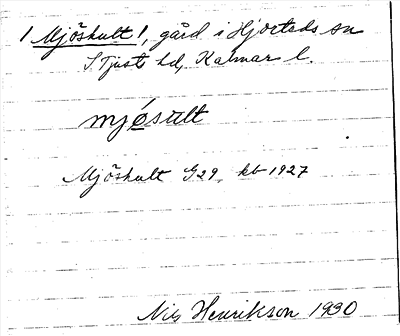 1 Mjöshult 1, gård i Hjorteds sn
S. Tjust hd, Kalmar l.
mjǿsult
Mjöshult G29, kb 1927
Nils Henrikson 1930